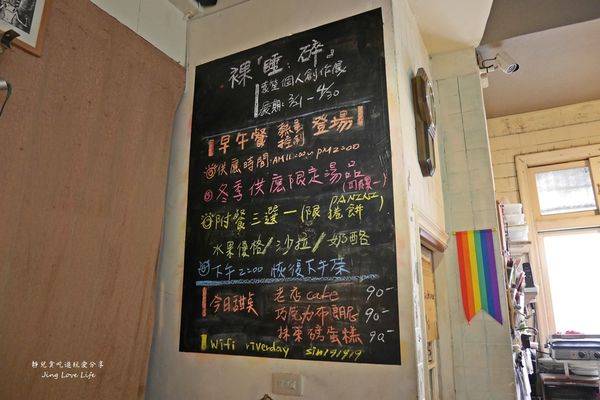 裸「睡．碎」
個人創作展
展期：3/21－4/30
早午餐 熱量控制 登場！
供應時間：AM11:00~PM2:00
冬季供應限定湯品
(可續一)
附餐三選一(限PANINI捲餅)
水果優格/沙拉/奶酪
下午2:00恢復下午茶
今日甜點 老店cafe 90-
巧克力布朗尼 90-
抹茶磅蛋糕 90-
Wifi riverday sin191919
靜兒貪吃逛玩愛分享
Jing Love Life